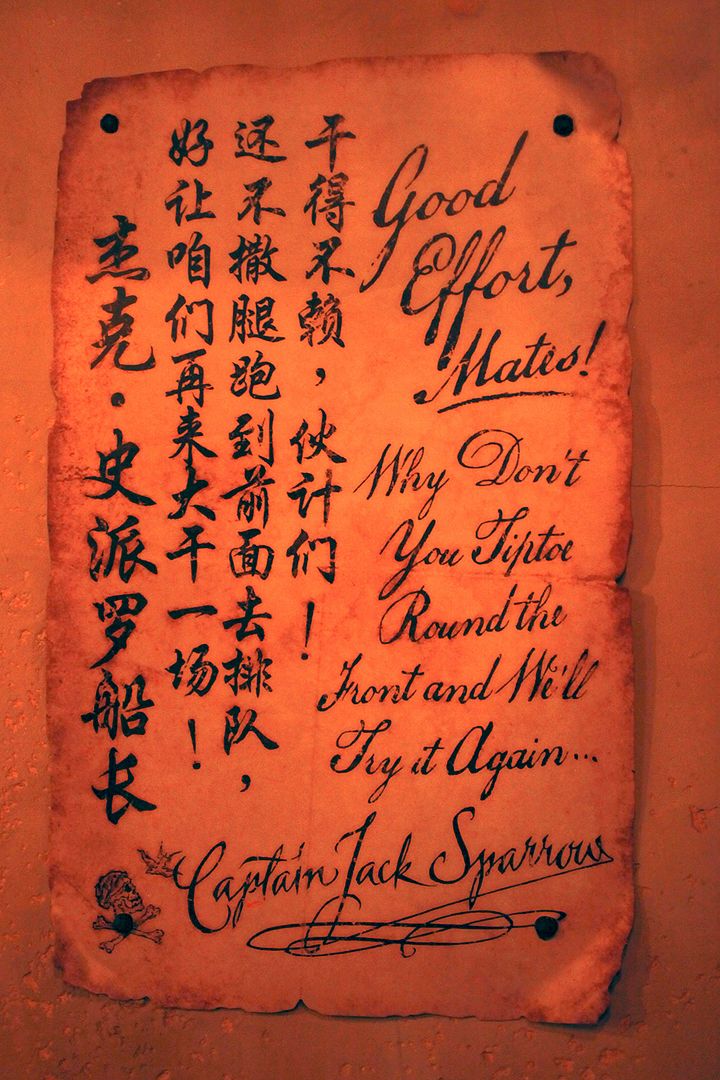 干得不赖，伙计们！
还不撒腿跑到前面去排队，
好让咱们再来大干一场！
杰克·史派罗船长
Good
Effort,
Mates!
Why Don't
You Tiptoe
Round the
Front and We'll
Try it Again...
Captain Jack Sparrow